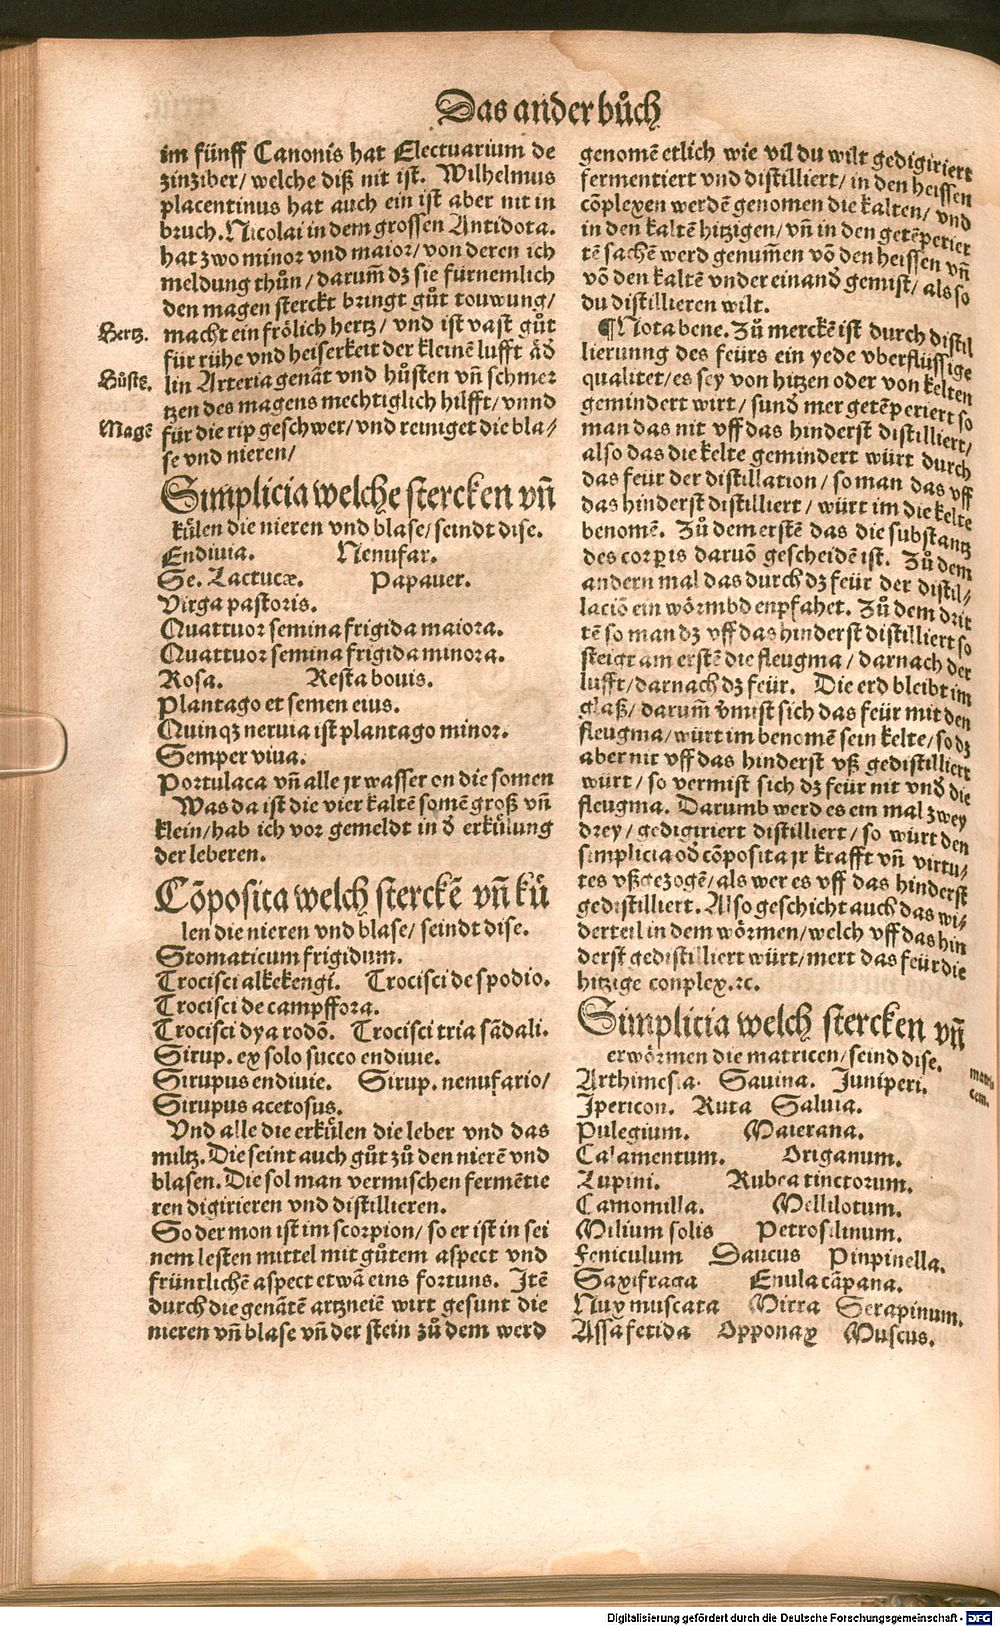 Das ander bůch
im fünff Canonis hat Electuarium de
zinziber/ welche diß nit ist. Wilhelmus
placentinus hat auch ein ist aber nit in
bruch. Nicolai in dem grossen Antidota.
hat zwo minor vnd maior/ von deren ich
meldung thůn/ darum̃ dz sie fürnemlich
den magen sterckt bringt gůt touwung/
Hertz.
macht ein frölich hertz/ vnd ist vast gůt
für rühe vnd heiserkeit der kleinẽ lufft åd
Hůstẽ.
lin Arteria genãt vnd hůsten vñ schmer
tzen des magens mechtiglich hilfft/ vnnd
Magẽ
für die rip geschwer/ vnd reiniget die bla⸗
se vnd nieren/
Simplicia welche stercken vñ
külen die nieren vnd blase/ seindt dise.
Endivia. Nenufar.
Se. Lactucæ. Papauer.
Virga pastoris.
Quattuor semina frigida maiora.
Quattuor semina frigida minora.
Rosa. Resta bouis.
Plantago et semen eius.
Quinqz neruia ist plantago minor.
Semper viua.
Portulaca vñ alle jr wasser on die somen
Was da ist die vier kaltẽ somẽ groß vñ
klein/ hab ich vor gemeldt in d̓ erkülung
der leberen.
Cõposita welch sterckẽ vñ kü
len die nieren vnd blase/ seindt dise.
Stomaticum frigidum.
Trocisci alkekengi. Trocisci de spodio.
Trocisci de campffora.
Trocisci dya rodõ. Trocisci tria sãdali.
Sirup. ex solo succo endiuie.
Sirupus endiuie. Sirup. nenufario/
Sirupus acetosus.
Vnd alle die erkülen die leber vnd das
miltz. Die seint auch gůt zů den nierẽ vnd
blasen. Die sol man vermischen fermẽtie
ren digirieren vnd distillieren.
So der mon ist im scorpion/ so er ist in sei
nem lesten mittel mit gůtem aspect vnd
früntlichẽ aspect etwã eins fortuns. Itẽ
durch die genãtẽ artzneiẽ wirt gesunt die
nieren vñ blase vñ der stein zů dem werd
genomẽ etlich wie vil du wilt gedigiriert
fermentiert vnd distilliert/ in den heissen
cõplexen werdẽ genomen die kalten/ vnd
in den kaltẽ hitzigen/ vñ in den getẽperier
tẽ sachẽ werd genum̃en võ den heissen vñ
võ den kaltẽ vnder einand̓ gemist/ als so
du distillieren wilt.
¶Nota bene. Zů merckẽ ist durch distil
lierunng des feürs ein yede vberflüssige
qualitet/ es sey von hitzen oder von kelten
gemindert wirt/ sund̓ mer getẽperiert so
man das nit vff das hinderst distilliert/
also das die kelte gemindert würt durch
das feür der distillation/ so man das vff
das hinderst distilliert/ würt im die kelte
benomẽ. Zů dem erstẽ das die substantz
des corpis daruõ gescheidẽ ist. Zů dem
andern mal das durch dz feür der distil⸗
laciõ ein wörmbd enpfahet. Zů dem drit
tẽ so man dz vff das hinderst distilliert so
steigt am erstẽ die fleugma/ darnach der
lufft/ darnach dz feür. Die erd bleibt im
glaß/ darum̃ v̓mist sich das feür mit den
fleugma/ würt im benomẽ sein kelte/ so dz
aber nit vff das hinderst vß gedistilliert
würt/ so vermist sich dz feür nit vnd̓ die
fleugma. Darumb werd es ein mal zwey
drey/ gedigiriert distilliert/ so würt den
simplicia od̓ cõposita jr krafft vñ virtu⸗
tes vßgezogẽ/ als wer es vff das hinderst
gedistilliert. Also geschicht auch das wi⸗
derteil in dem wörmen/ welch vff das hin
derst gedistilliert würt/ mert das feür die
hitzige conplex.ꝛc.
Simplicia welch stercken vñ
erwörmen die matricen/ seind dise.
matri
cem.
Arthimesia. Sauina. Juniperi.
Ipericon. Ruta Saluia.
Pulegium. Maierana.
Calamentum. Origanum.
Lupini. Rubea tinctorum.
Camomilla. Mellilotum.
Milium solis Petrosilinum.
Feniculum Daucus Pinpinella.
Saxifraga Enula cãpana.
Nux muscata Mirra Serapinum.
Assa fetida Opponax Muscus.
Digitalisierung gefördert durch die Deutsche Forschungsgemeinschaft - DFG